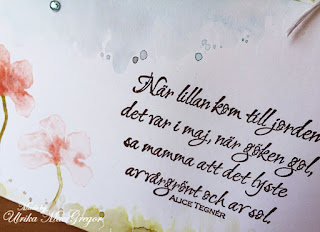 När lillan kom till jorden
det var i maj, när göken gol,
sa mamma att det lyste
av vårgrönt och av sol.
ALICE TEGNÉR
Made by
Ulrika MacGregor